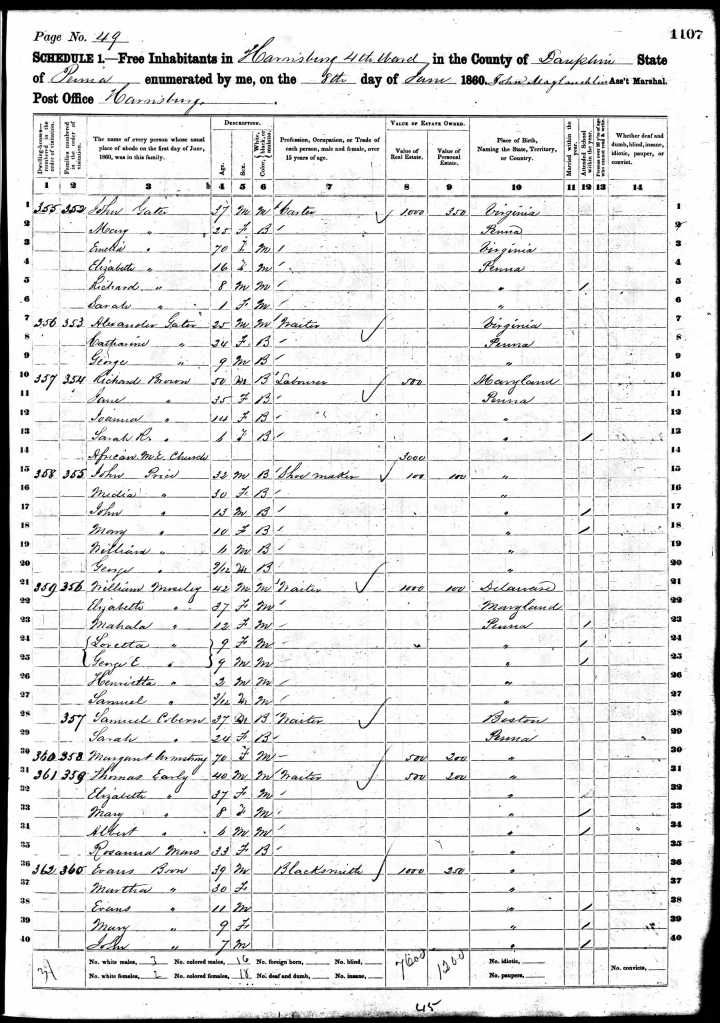 Page No. 49
1107
SCHEDULE 1.—Free Inhabitants in Harrisburg 4th Ward in the County of Dauphin State
of Penna enumerated by me, on the 8th day of June 1860. John Ass't Marshal.
Post Office Harrisburg
DESCRIPTION. VALUE OF ESTATE OWNED.
Dwelling-houses—numbered in the order of visitation. Families numbered in the order of visitation. The name of every person whose usual place of abode on the first day of June, 1860, was in this family. Age. Sex. Color, White, black, or mulatto. Profession, Occupation, or Trade of each person, male and female, over 15 years of age. Value of Real Estate. Value of Personal Estate. Place of Birth, Naming the State, Territory, or Country. Married within the year. Attended School within the year. Persons over 20 y'rs of age who cannot read & write. Whether deaf and dumb, blind, insane, idiotic, pauper, or convict.
1 2 3 4 5 6 7 8 9 10 11 12 13 14
1 355 352 John Gater 37 M M Carter 1000 350 Virginia 1
2 Mary " 25 F B Penna 2
3 Emelia " 70 F M Virginia 3
4 Elizabeth " 16 F M Penna 4
5 Richard " 8 M M " 1 5
6 Sarah " 1 F M " 6
7 356 353 Alexander Gater 25 M M Waiter Virginia 7
8 Catharine " 24 F B Penna 8
9 George " 9 M B " 9
10 357 354 Richard Brown 50 M B Labourer 500 Maryland 10
11 Jane " 35 F B Penna 11
12 Joanna " 14 F B " 12
13 Sarah R. " 6 F B " 1 13
14 African M.E. Church 3000 14
15 358 355 John Price 32 M B Shoe maker 100 100 " 15
16 Media " 30 F B " 16
17 John " 13 M B " 1 17
18 Mary " 10 F B " 1 18
19 William " 4 M B " 19
20 George " 9/12 M B " 20
21 359 356 William Mosley 42 M M Waiter 1000 100 Delaware 21
22 Elizabeth " 37 F M Maryland 22
23 Mahala " 12 F M Penna 1 23
24 Loretta " 9 F M " 1 24
25 George E. " 9 M M " 1 25
26 Henrietta " 2 M M " 26
27 Samuel " 3/12 M M " 27
28 357 Samuel Cobern 37 M B Waiter Boston 28
29 Sarah " 24 F B Penna 29
30 360 358 Margaret Armstrong 70 F M 500 200 " 30
31 361 359 Thomas Early 40 M M Waiter 500 200 " 31
32 Elizabeth " 37 F M " 32
33 Mary " 8 F M " 1 33
34 Albert " 6 M M " 1 34
35 Rosanna Mars 33 F B " 35
36 362 360 Evans Boon 39 M Blacksmith 1000 250 " 36
37 Martha " 30 F " 37
38 Evans " 11 M " 1 38
39 Mary " 9 F " 1 39
40 John " 7 M " 1 40
No. white males, 3 No. colored males, 16 No. foreign born, No. blind, 7600 1200 No. idiotic, No. convicts,
No. white females, 2 No. colored females, 18 No. deaf and dumb, No. insane, No. paupers,
45